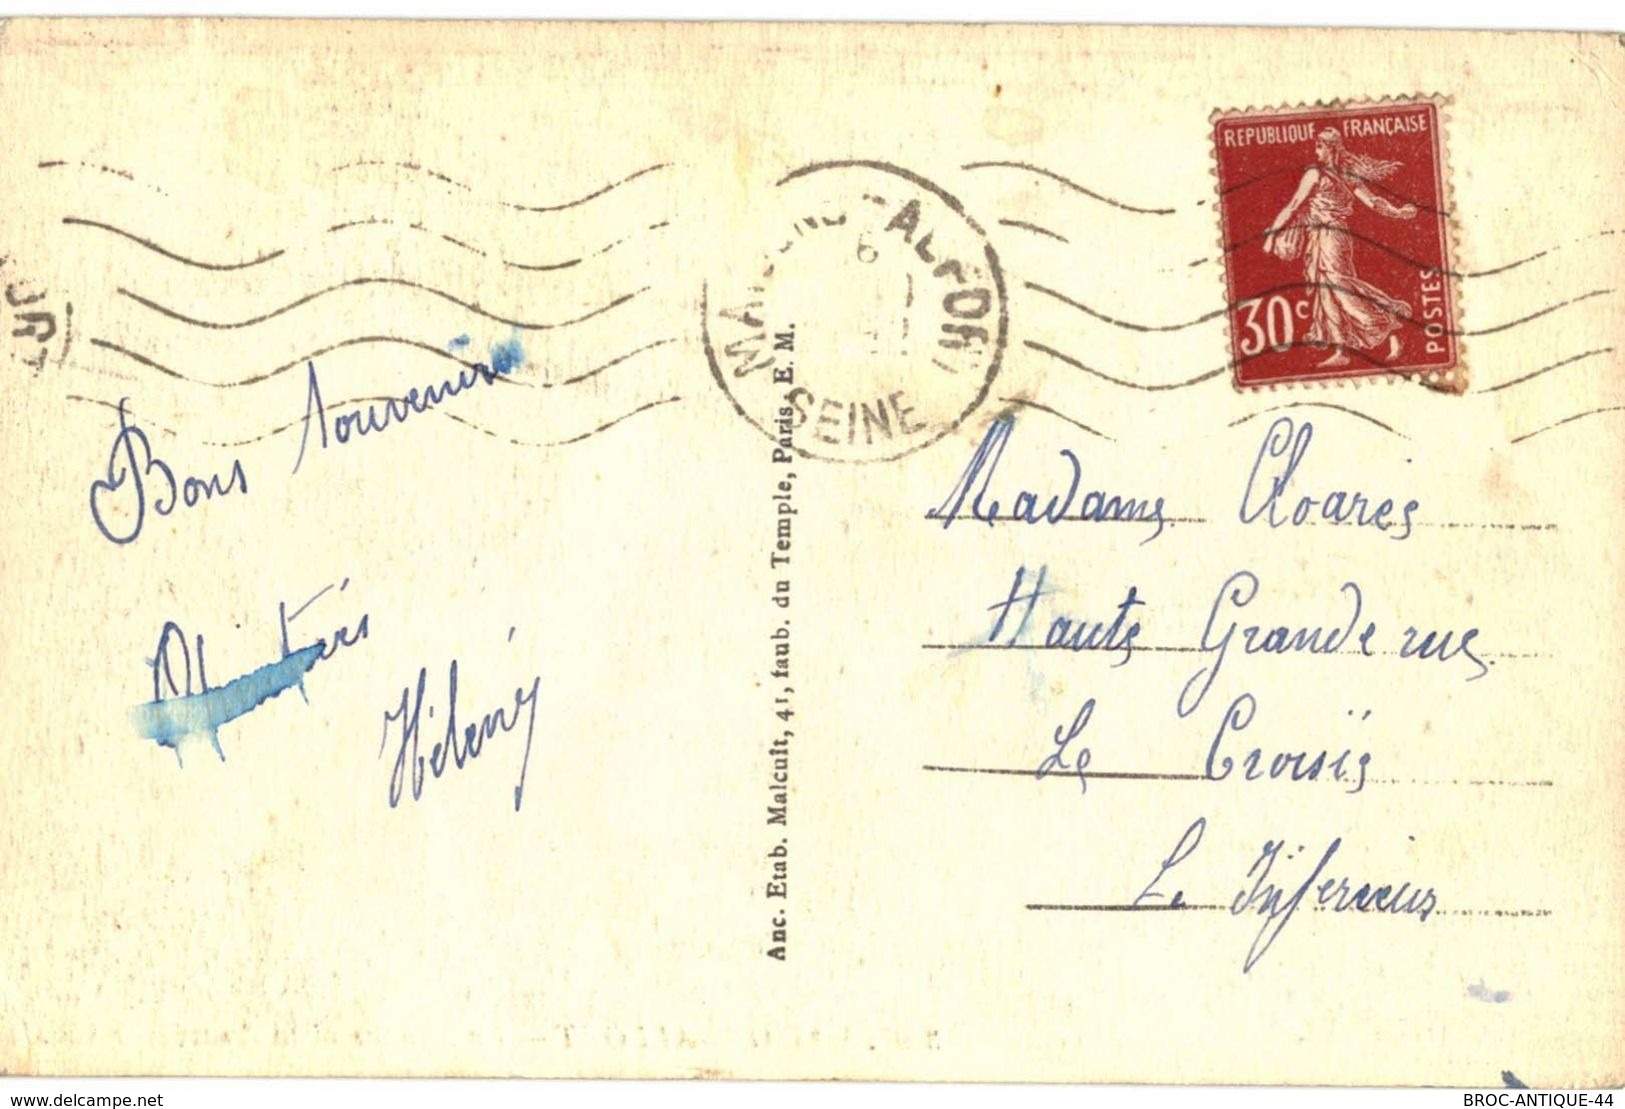 REPUBLIQUE FRANÇAISE
30c
POSTES
SEINE
Bons souvenirs
Hélène
Anc. Etab. Malcuit, 41, faub. du Temple, Paris. E. M.
Madame Cloarec
Haute Grande rue
Le Croisic
Le Inferieur
delcampe.net
BROC-ANTIQUE-44